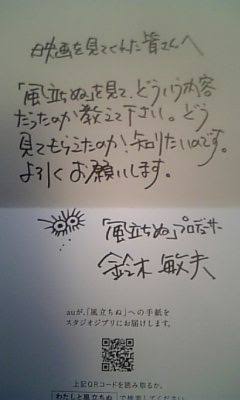 映画を見てくれた皆さんへ
「風立ちぬ」を見て、どういう内容
だったのか教えて下さい。どう
見てもらえたのか知りたいのです。
よろしくお願いします。
「風立ちぬ」プロデューサー
鈴木敏夫
auが、「風立ちぬ」への手紙を
スタジオジブリにお届けします。
上記QRコードを読み取るか、
わたしと風立ちぬ で検索してください。